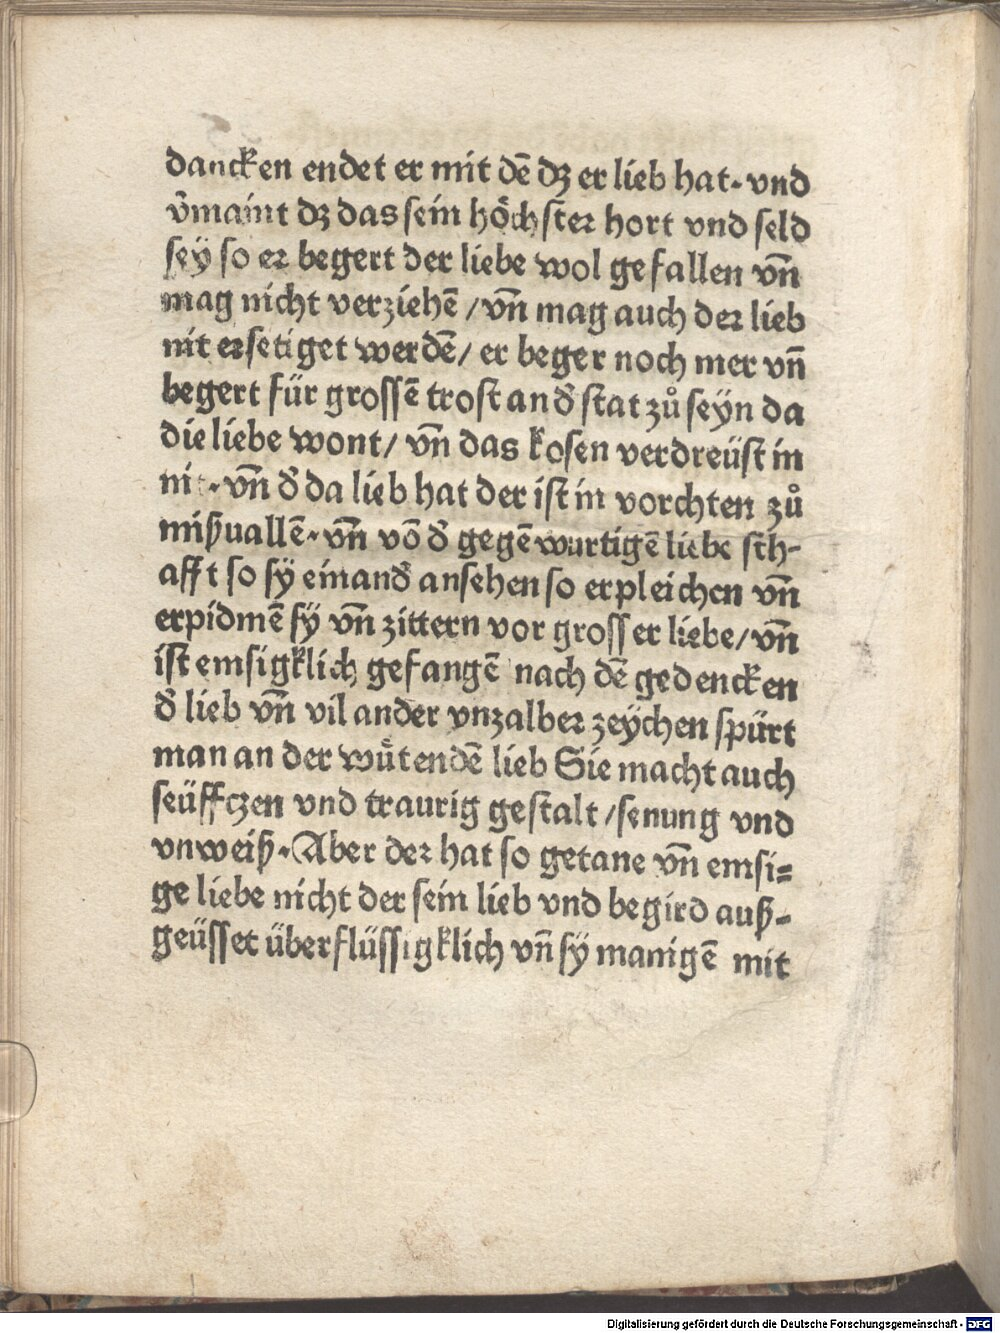 dancken endet er mit dē dz er lieb hat· vnd
v̄maint dz das sein hőchster hort vnd seld
sey so er begert der liebe wol gefallen vn̄
mag nicht verziehē / vn̄ mag auch der lieb
nit ersetiget werdē/ er beger noch mer vn̄
begert für grossē trost an d̄ stat zů seyn da
die liebe wont/ vn̄ das kosen verdreüst in
nit· vn̄ d̄ da lieb hat der ist in vorchten zů
mißuallē· vn̄ vō d̄ gegēwurtigē liebe sch-
afft so sÿ einand̄ ansehen so erpleichen vn̄
erpidmē sÿ vn̄ zittern vor grosser liebe/ vn̄
ist emsigklich gefangē nach dē gedencken
d̄ lieb vn̄ vil ander vnzalber zeychen spürt
man an der wűtendē lieb Sie macht auch
seüfftzen vnd traurig gestalt /senung vnd
vnweiß· Aber der hat so getane vn̄ emsi=
ge liebe nicht der sein lieb vnd begird auß-
geüsset überflüssigklich vn̄ sÿ manigē mit
Digitalisierung gefördert durch die Deutsche Forschungsgemeinschaft - DFG